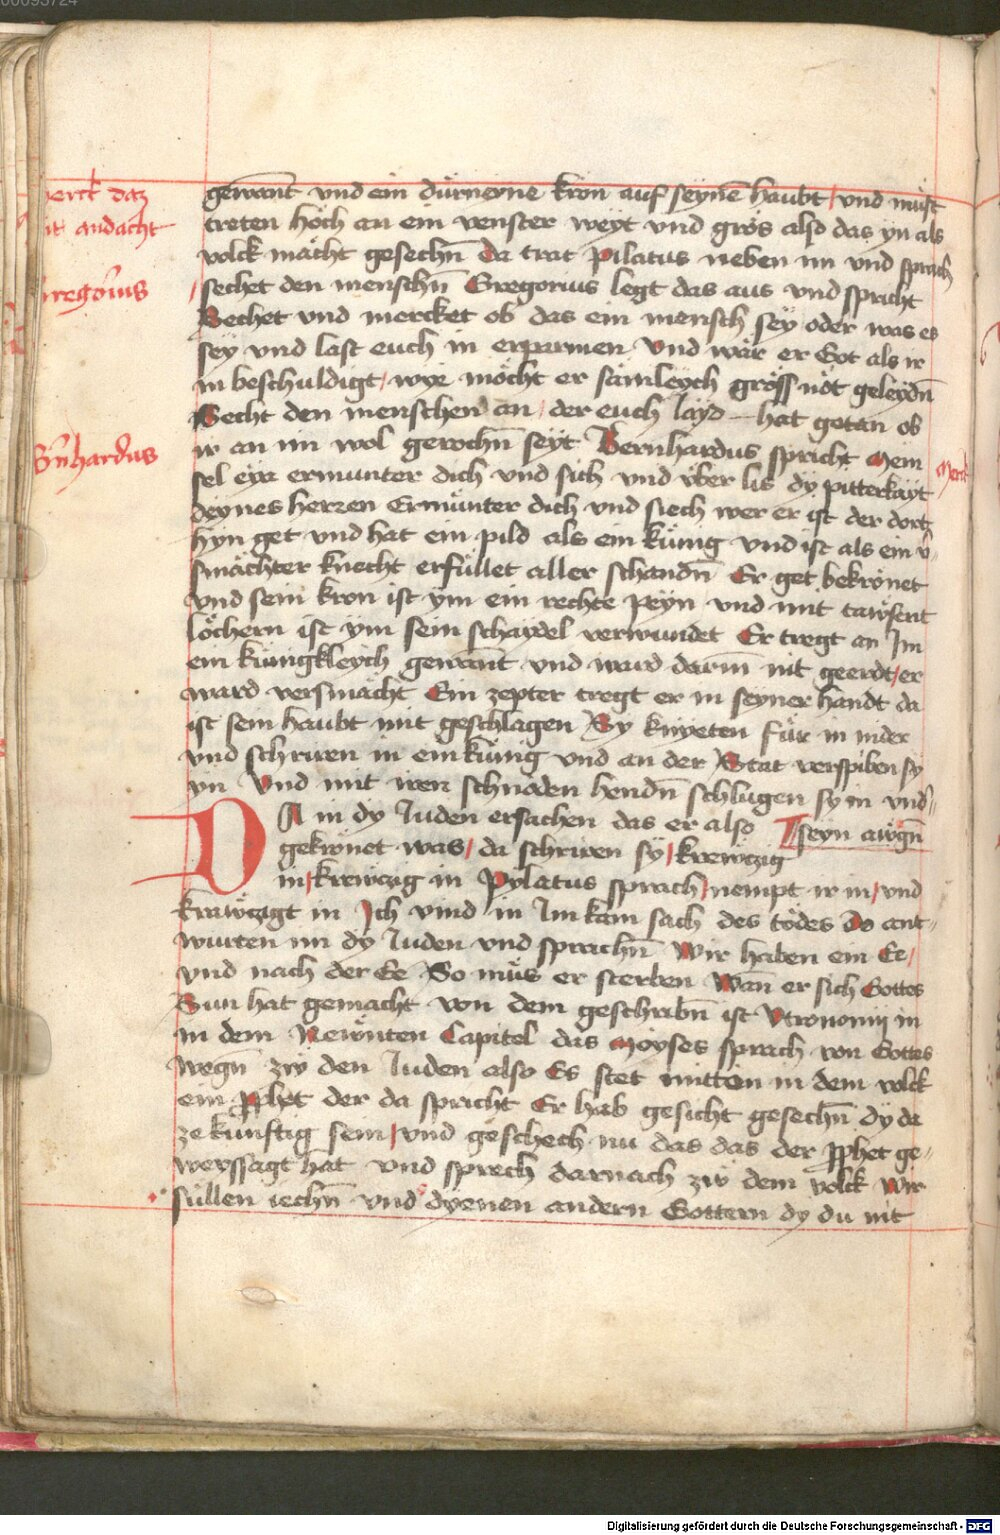 00093724
merck daz
mit andacht
Gregorius
Bernhardus
Merck
gewant vnd ein dürneyne kron auf seynē haubt / vnd müst
treten hoch an ein venster weyt vnd grös also das yn als
volck macht gesechn̄ Da trat Pilatus neben im vnd sprach
sechet den menschn̄ Gregorius legt das aus vnd spricht
Sechet vnd mercket ob das ein mensch sey oder was es
sey vnd last euch in erparmen Vnd wär er Got als ir
in beschuldigt / wye möcht er sämleych gröss nöt geleydn̄
Secht den menschen an / der euch layd hat getan ob
ir an im wol gerochn̄ seyt Bernhardus spricht Mein
sel eya ermunter dich vnd sich vnd vber lis dy pitterkayt
deynes herzen Ermünter dich vnd siech wer er ist der dortz
hyn get vnd hat ein pild als ein künig vnd ist als ein v̄-
smächter knecht erfüllet aller schandn̄ Er get bekrönet
vnd sein kron ist ym ein rechte peyn vnd mit tawsent
löchern ist ym sein schaydel verwundet Er tregt an Im
ein künigkleych gewant vnd ward darin̄ nit geerdt / er
ward versmächt Ein zepter tregt er in seyner handt da
ist sein haubt mit geschlagen Sy knyeten für in nider
vnd schriren in ein künig vnd an der Stat verspiben sy
yn Vnd mit iren schnoden hendn̄ schlugen sy in vnd̄
seyn awgn̄
DA in dy Juden ersachen das er also
gekrönet was / da schriren sy / krewtzig
in / krewtzig in Pylatus sprach / nempt ir in / vnd
krawtzigt in Ich vind in Im kain sach des todes Do ant-
wurten im dy Juden vnd sprachn̄ Wir haben ein Ee /
vnd nach der Ee So müs er sterben Wan̄ er sich Gottes
Sun hat gemacht von dem geschribn̄ ist Vtronomij in
in dem Newnten Capitel das Moyses sprach von Gottes
wegn̄ zw den Juden also Es stet mitten in dem volck
ein ꝓphet der da spricht Er hab gesicht gesechn̄ dy da
ze künftig sein / vnd geschech nu das das der ꝓphet ge-
weyssagt hat vnd sprech darnach zw dem volck Wir
süllen iechn̄ vnd dyenen andern Gottern dy du nit
Digitalisierung gefördert durch die Deutsche Forschungsgemeinschaft - DFG